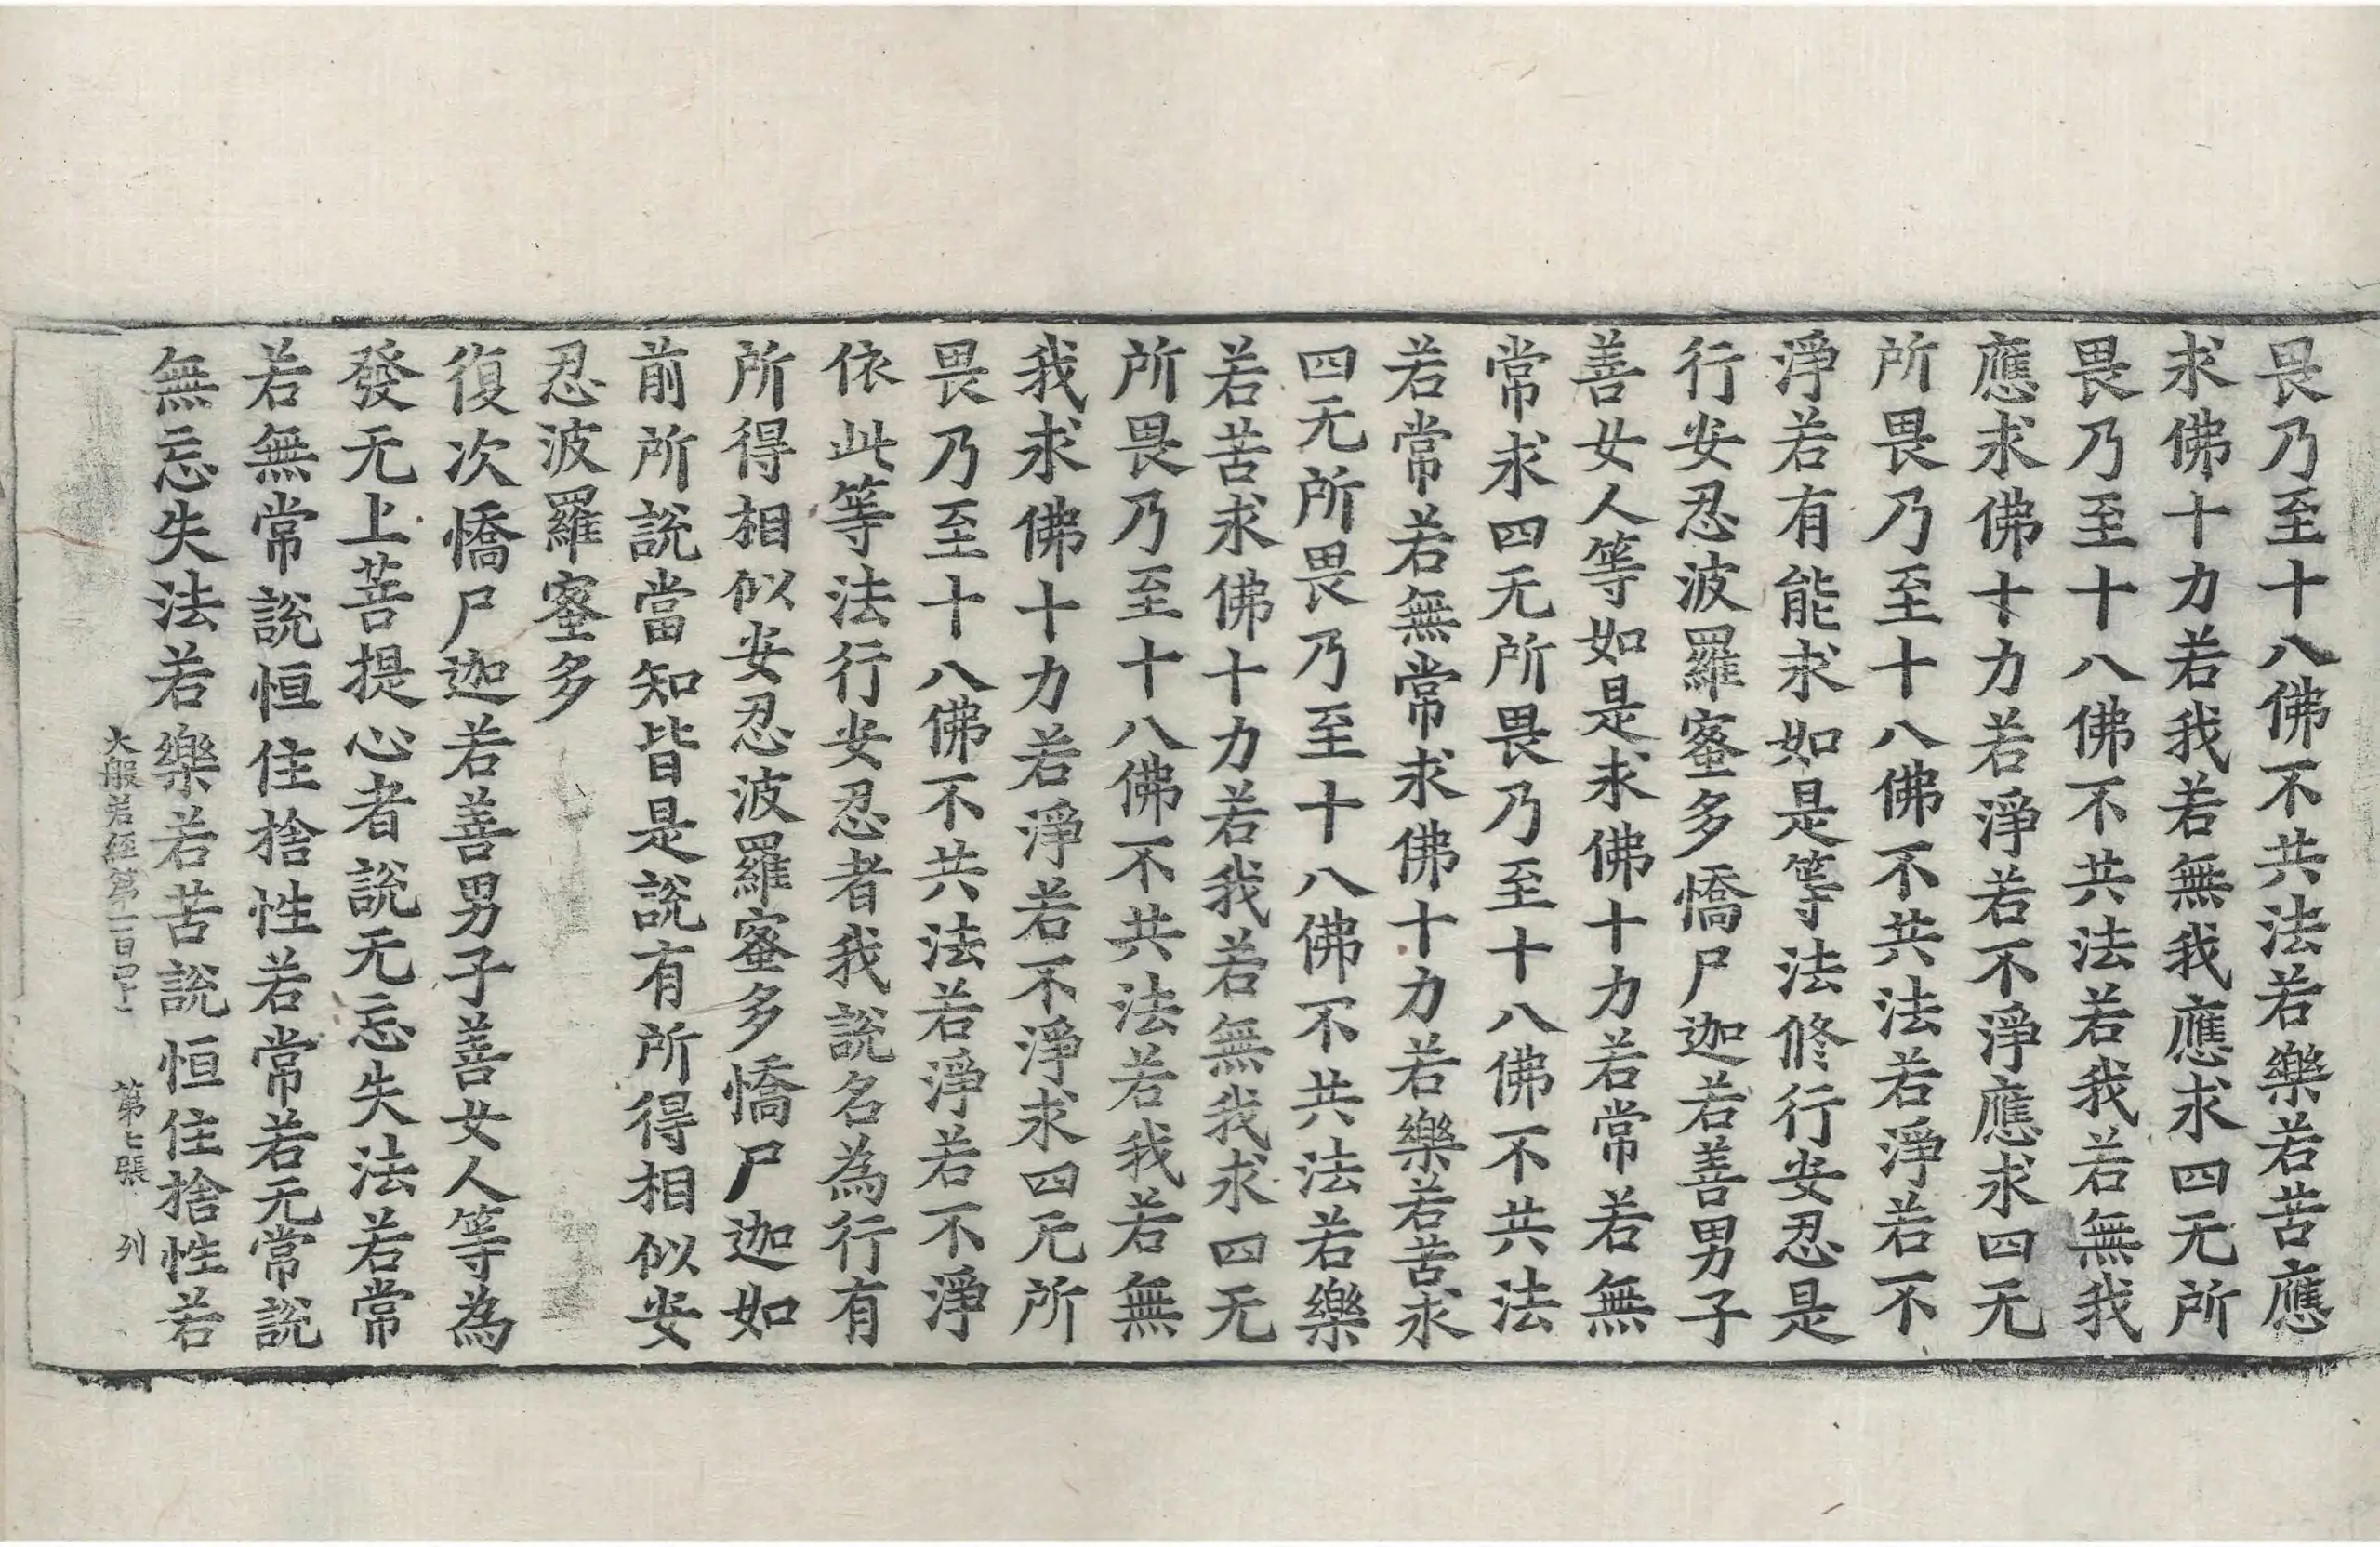 畏乃至十八佛不共法若樂若苦應
求佛十力若我若無我應求四无所
畏乃至十八佛不共法若我若無我
應求佛十力若淨若不淨應求四无
所畏乃至十八佛不共法若淨若不
淨若有能求如是等法修行安忍是
行安忍波羅蜜多憍尸迦若善男子
善女人等如是求佛十力若常若無
常求四无所畏乃至十八佛不共法
若常若無常求佛十力若樂若苦求
四无所畏乃至十八佛不共法若樂
若苦求佛十力若我若無我求四无
所畏乃至十八佛不共法若我若無
我求佛十力若淨若不淨求四无所
畏乃至十八佛不共法若淨若不淨
依此等法行安忍者我說名為行有
所得相似安忍波羅蜜多憍尸迦如
前所說當知皆是說有所得相似安
忍波羅蜜多
復次憍尸迦若善男子善女人等為
發无上菩提心者說无忘失法若常
若無常說恒住捨性若常若无常說
無忘失法若樂若苦說恒住捨性若
大般若經第一百四十二 第七張 列